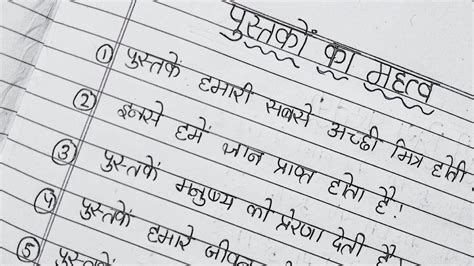 पुस्तकों का महत्व
① पुस्तकें हमारी सबसे अच्छी मित्र होती
② इनसे हमें ज्ञान प्राप्त होता है!
③ पुस्तकें मनुष्य को प्रेरणा देती है
④ पुस्तकें हमारे जीवन
⑤ पुस्तकें